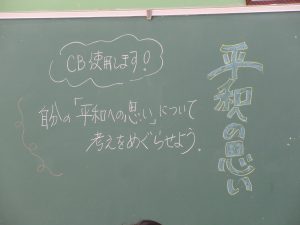 平和への思い
CB使用します!
自分の「平和への思い」について
考えをめぐらせよう。